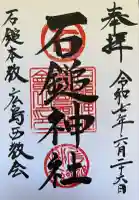 奉拝
令和七年二月二十六日
石鎚神社
石鎚本教 広島西教会